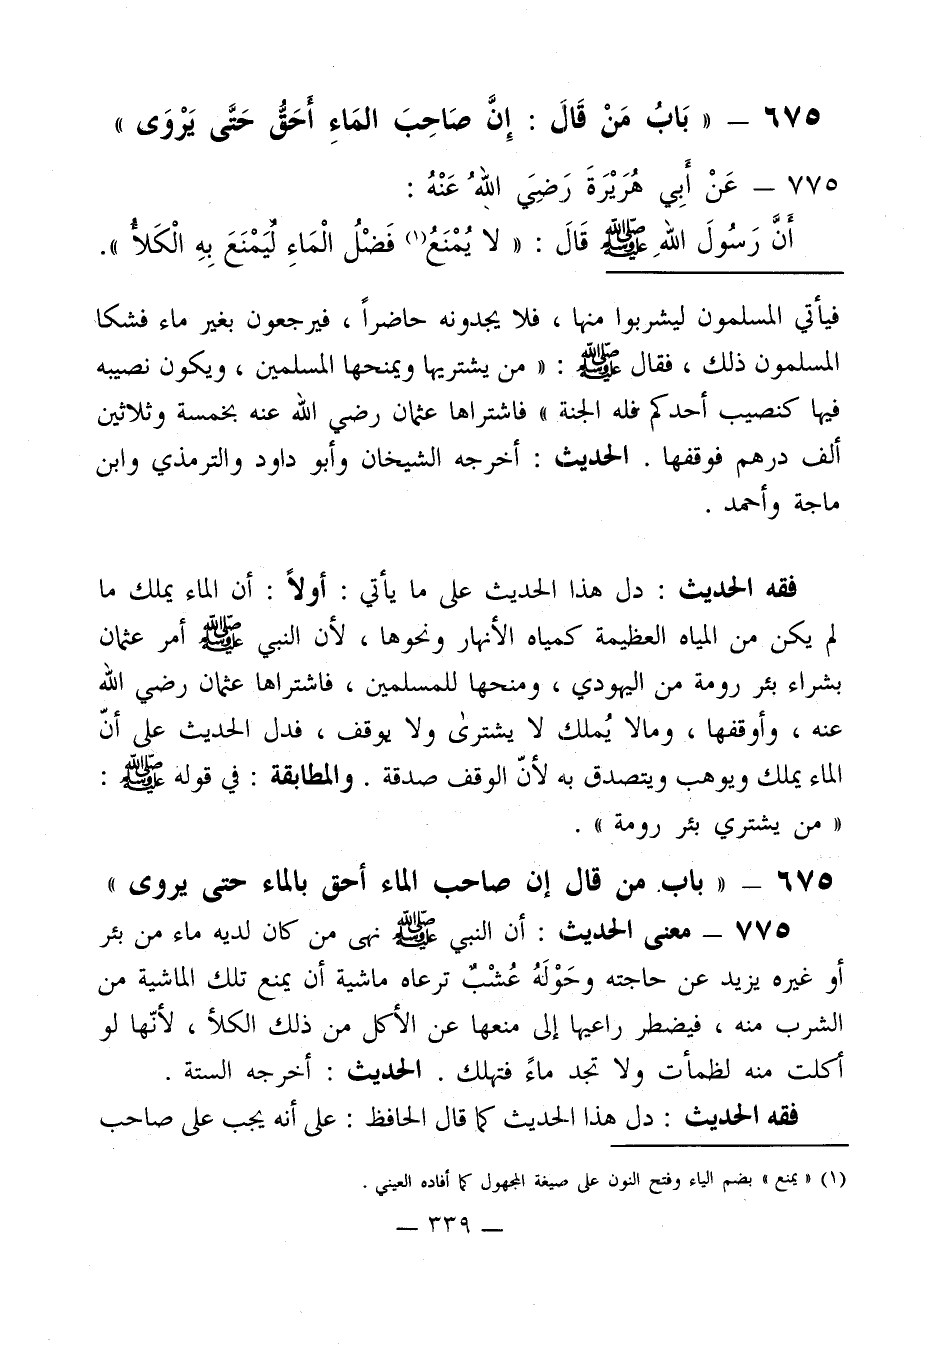 ٦٧٥ – « بَابُ مَنْ قَالَ : إِنَّ صَاحِبَ المَاءِ أَحَقُّ حَتَّى يَرْوَى »
٧٧٥ – عَنْ أَبِي هُرَيْرَةَ رَضِيَ اللهُ عَنْهُ :
أَنَّ رَسُولَ اللهِ ﷺ قَالَ : « لا يُمْنَعُ(١) فَضْلُ الْمَاءِ لِيُمْنَعَ بِهِ الْكَلأُ ».
فيأتي المسلمون ليشربوا منها ، فلا يجدونه حاضراً ، فيرجعون بغير ماء فشكا
المسلمون ذلك ، فقال ﷺ : « من يشتريها ويمنحها المسلمين ، ويكون نصيبه
فيها كنصيب أحدكم فله الجنة » فاشتراها عثمان رضي الله عنه بخمسة وثلاثين
ألف درهم فوقفها . الحديث : أخرجه الشيخان وأبو داود والترمذي وابن
ماجة وأحمد .
فقه الحديث : دل هذا الحديث على ما يأتي : أولاً : أن الماء يملك ما
لم يكن من المياه العظيمة كمياه الأنهار ونحوها ، لأن النبي ﷺ أمر عثمان
بشراء بئر رومة من اليهودي ، ومنحها للمسلمين ، فاشتراها عثمان رضي الله
عنه ، وأوقفها ، ومالا يُملك لا يشترىٰ ولا يوقف ، فدل الحديث على أنّ
الماء يملك ويوهب ويتصدق به لأنّ الوقف صدقة . والمطابقة : في قوله ﷺ :
« من يشتري بئر رومة » .
٦٧٥ – « باب من قال إن صاحب الماء أحق بالماء حتى يروى »
٧٧٥ – معنى الحديث : أن النبي ﷺ نهى من كان لديه ماء من بئر
أو غيره يزيد عن حاجته وحَوْلَهُ عُشْبٌ ترعاه ماشية أن يمنع تلك الماشية من
الشرب منه ، فيضطر راعيها إلى منعها عن الأكل من ذلك الكلأ ، لأنّها لو
أكلت منه لظمأت ولا تجد ماءً فتهلك . الحديث : أخرجه الستة .
فقه الحديث : دل هذا الحديث كما قال الحافظ : على أنه يجب على صاحب
(١) « يمنع » بضم الياء وفتح النون على صيغة المجهول كما أفاده العيني .
– ٣٣٩ –